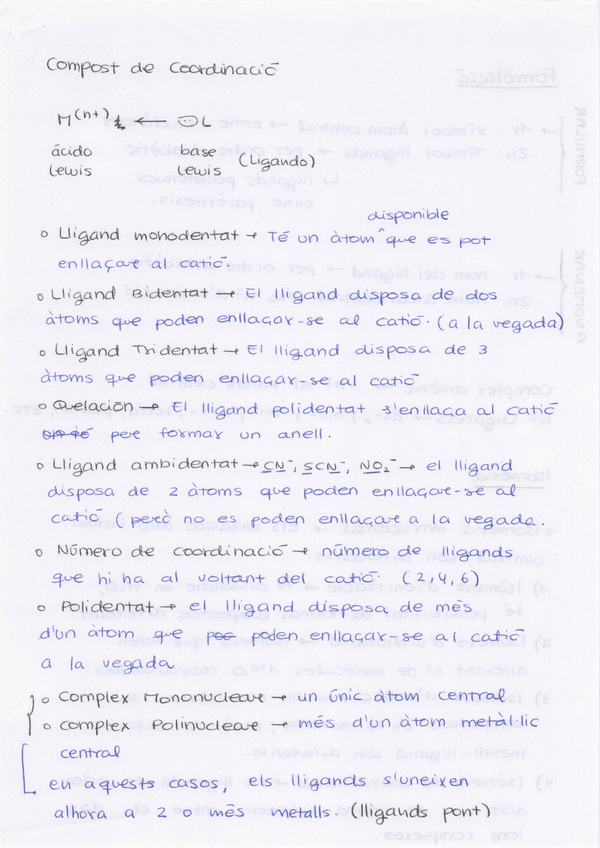 Compost de Coordinació
M(n+) ← L
ácido base (Ligando)
Lewis Lewis
disponible
o Lligand monodentat → Té un àtom ^ que es pot
enllaçar al catió.
o Lligand Bidentat → El lligand disposa de dos
àtoms que poden enllaçar-se al catió. (a la vegada)
o Lligand Tridentat → El lligand disposa de 3
àtoms que poden enllaçar-se al catió
o Quelación → El lligand polidentat s'enllaça al catió
per formar un anell.
o Lligand ambidentat → CN⁻, SCN⁻, NO₂⁻ → el lligand
disposa de 2 àtoms que poden enllaçar-se al
catió (però no es poden enllaçar a la vegada.
o Número de coordinació → número de lligands
que hi ha al voltant del catió. (2,4,6)
o Polidentat → el lligand disposa de més
d'un àtom que poden enllaçar-se al catió
a la vegada
o Complex Mononuclear → un únic àtom central
o complex Polinuclear → més d'un àtom metàl·lic
central
en aquests casos, els lligands s'uneixen
alhora a 2 o més metalls. (lligands pont)